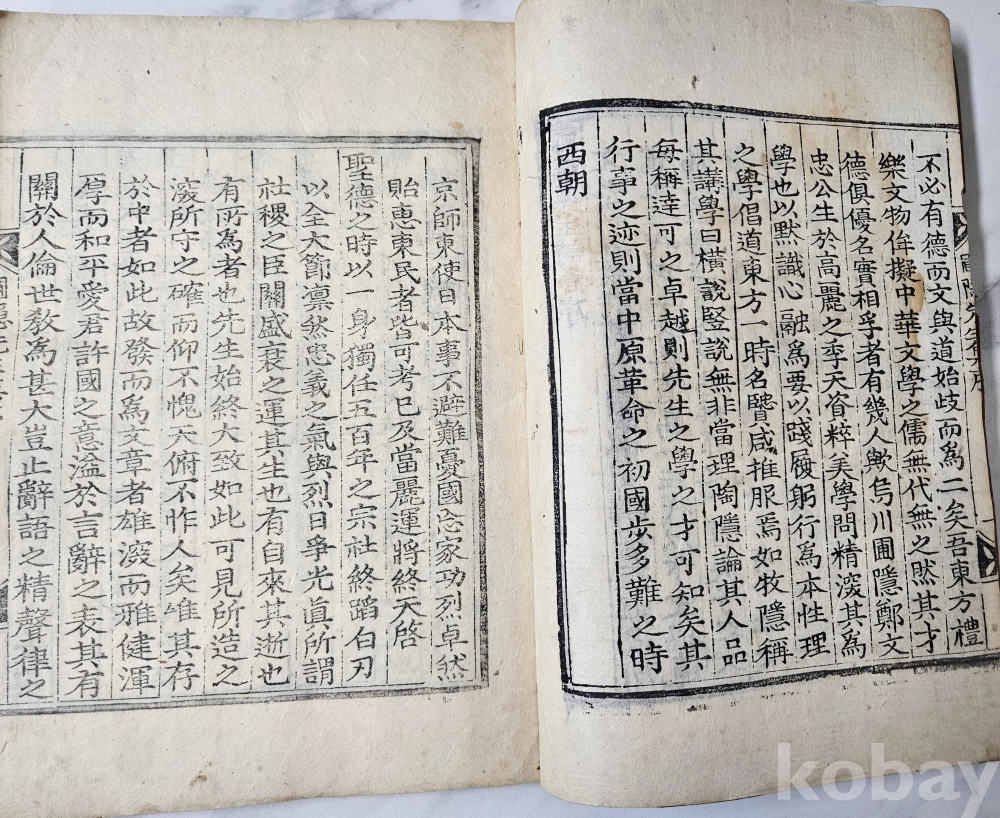 不必有德而文與道始歧而為二矣吾東方禮
樂文物侔擬中華文學之儒無代無之然其才
德俱優名實相孚者有幾人歟烏川圃隱鄭文
忠公生於高麗之季天資粹美學問精深其為
學也以默識心融為要以踐履躬行為本性理
之學倡道東方一時名贒咸推服焉如牧隱稱
其講學曰橫說竪說無非當理陶隱論其人品
每稱達可之卓越則先生之學之才可知矣其
行事之迹則當中原革命之初國步多難之時
西朝
京師東使日本事不避難憂國念家功烈卓然
貽惠東民者皆可考已及當麗運將終天啓
聖德之時以一身獨任五百年之宗社終蹈白刃
以全大節凛然忠義之氣與烈日爭光真所謂
社稷之臣關盛衰之運其生也有自來其逝也
有所為者也先生始終大致如此可見所造之
深所守之確而仰不愧天俯不怍人矣惟其存
於中者如此故發而為文章者雄深而雅健渾
厚而和平愛君許國之意溢於言辭之表其有
關於人倫世教為甚大豈止辭語之精聲律之
kobay